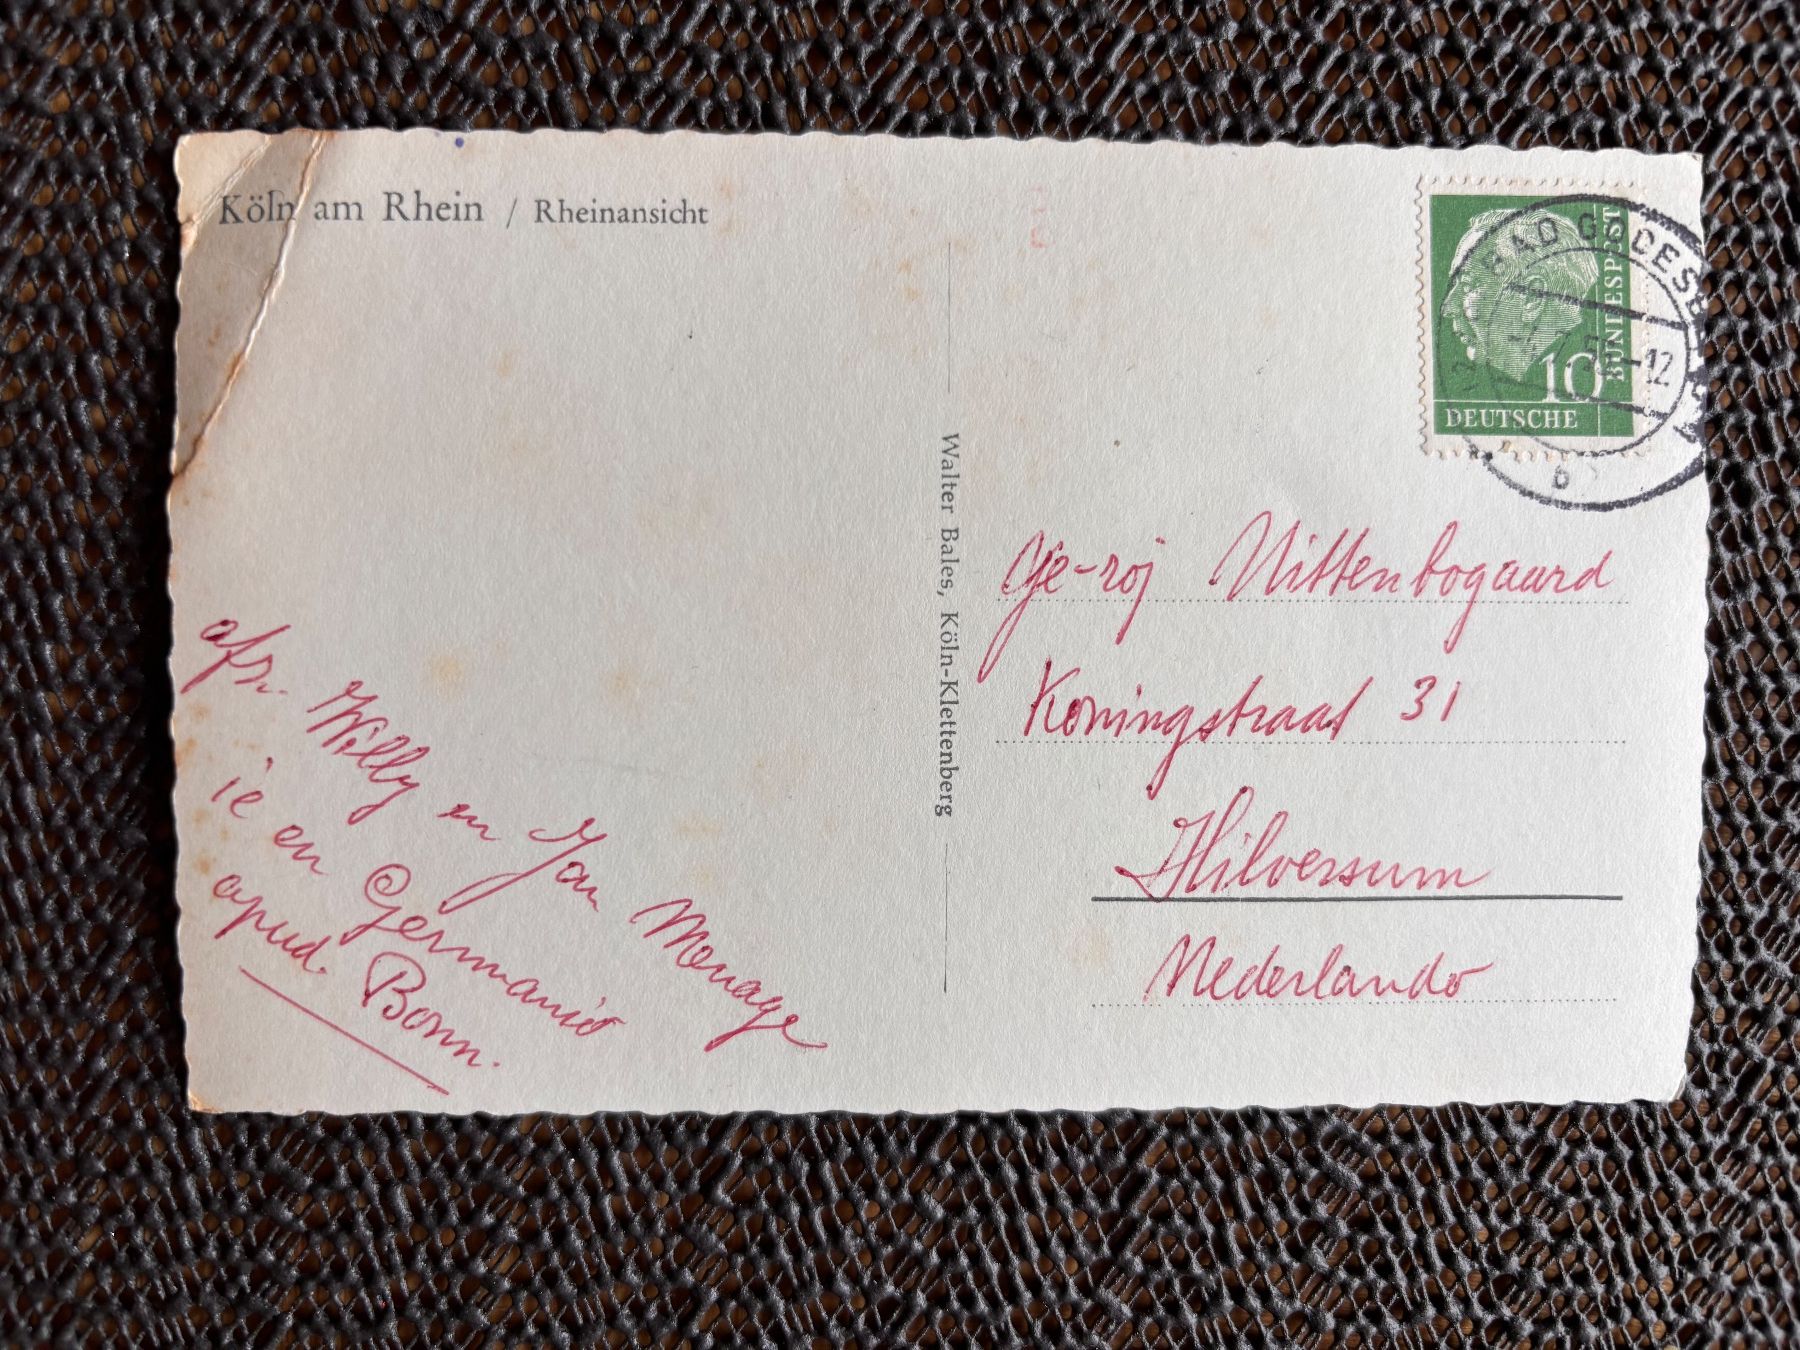 Köln am Rhein / Rheinansicht
BAD GODESB
12
10
BUNDESPOST
DEUTSCHE
b
Walter Bales, Köln-Klettenberg
Ge-roj Uittenbogaard
Koningstraat 31
Hilversum
Nederlando
afz. Willy en Jan Menage
ie en Germanio
apud Bonn.